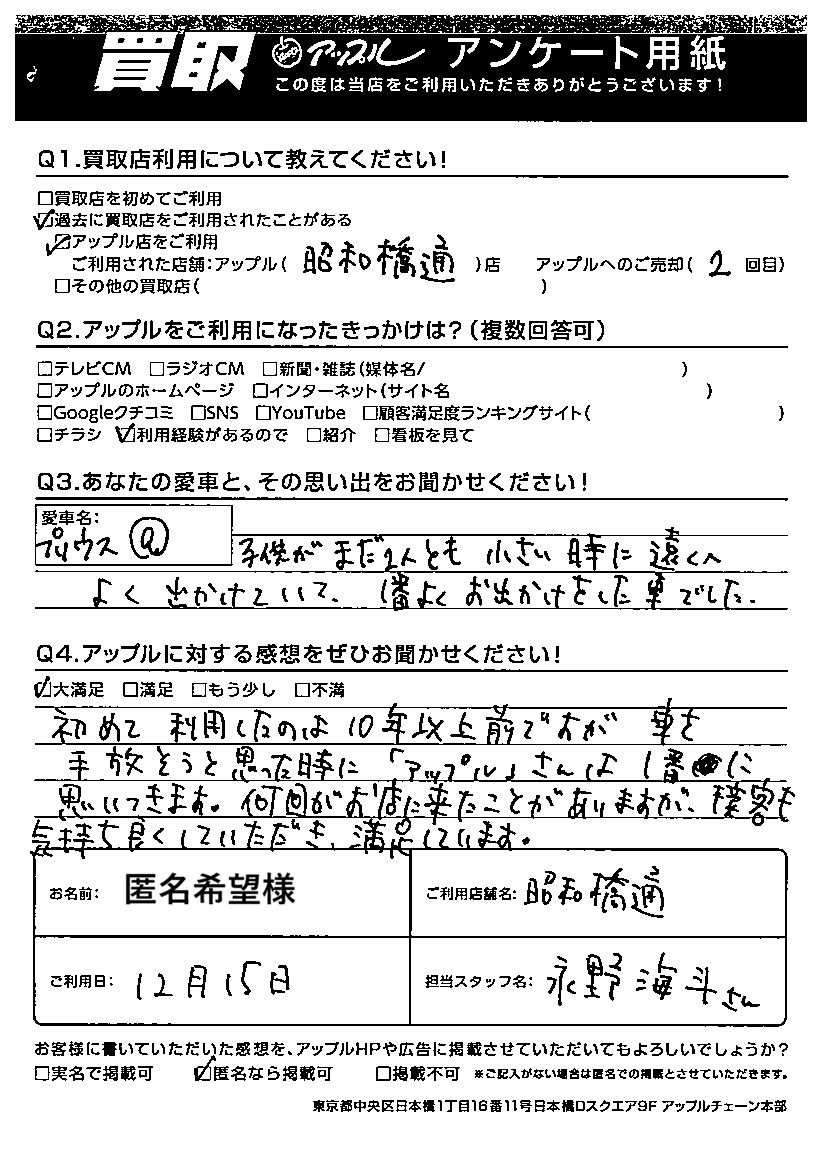 買取 アップル アンケート用紙
この度は当店をご利用いただきありがとうございます!
Q1.買取店利用について教えてください!
□買取店を初めてご利用
☑過去に買取店をご利用されたことがある
☑アップル店をご利用
ご利用された店舗:アップル( 昭和橋通 )店 アップルへのご売却( 2 回目)
□その他の買取店( )
Q2.アップルをご利用になったきっかけは?(複数回答可)
□テレビCM □ラジオCM □新聞・雑誌(媒体名/ )
□アップルのホームページ □インターネット(サイト名 )
□Googleクチコミ □SNS □YouTube □顧客満足度ランキングサイト( )
□チラシ ☑利用経験があるので □紹介 □看板を見て
Q3.あなたの愛車と、その思い出をお聞かせください!
愛車名:
プリウス ⓐ 子供がまだ2人とも 小さい時に遠くへ
よく出かけていて、1番よくお出かけをした車でした.
Q4.アップルに対する感想をぜひお聞かせください!
☑大満足 □満足 □もう少し □不満
初めて利用したのは10年以上前ですが 車を
手放そうと思った時に「アップル」さんは1番に
思いつきます。何回かお店に来たことがありますが、接客も
気持ち良くしていただき、満足しています。
お名前: 匿名希望様 ご利用店舗名: 昭和橋通
ご利用日: 12月15日 担当スタッフ名: 永野海斗さん
お客様に書いていただいた感想を、アップルHPや広告に掲載させていただいてもよろしいでしょうか?
□実名で掲載可 ☑匿名なら掲載可 □掲載不可 ※ご記入がない場合は匿名での掲載とさせていただきます。
東京都中央区日本橋1丁目16番11号日本橋Dスクエア9F アップルチェーン本部